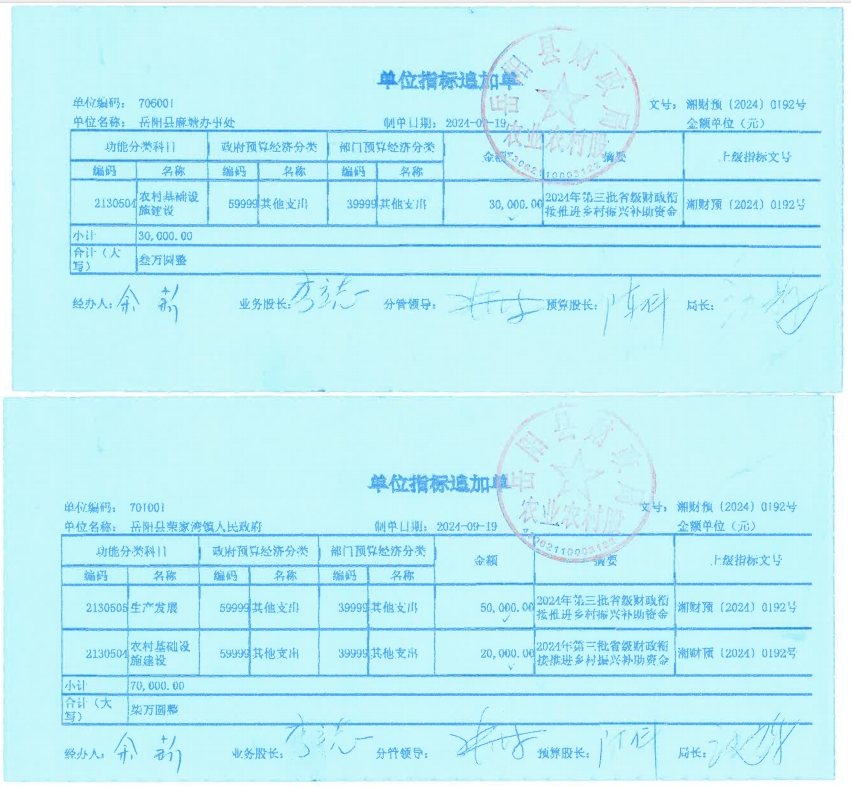 单位指标追加单
单位编码： 706001 文号： 湘财预〔2024〕0192号
单位名称： 岳阳县麻塘办事处 制单日期： 2024-09-19 金额单位（元）
功能分类科目 政府预算经济分类 部门预算经济分类 金额 摘要 上级指标文号
编码 名称 编码 名称 编码 名称
2130504 农村基础设施建设 59999 其他支出 39999 其他支出 30,000.00 2024年第三批省级财政衔接推进乡村振兴补助资金 湘财预〔2024〕0192号
小计 30,000.00
合计（大写） 叁万圆整
经办人： 余新 业务股长： 李立志 分管领导： 预算股长： 陈科 局长：
岳阳县财政局
农业农村股
单位指标追加单
单位编码： 701001 文号： 湘财预〔2024〕0192号
单位名称： 岳阳县荣家湾镇人民政府 制单日期： 2024-09-19 金额单位（元）
功能分类科目 政府预算经济分类 部门预算经济分类 金额 摘要 上级指标文号
编码 名称 编码 名称 编码 名称
2130505 生产发展 59999 其他支出 39999 其他支出 50,000.00 2024年第三批省级财政衔接推进乡村振兴补助资金 湘财预〔2024〕0192号
2130504 农村基础设施建设 59999 其他支出 39999 其他支出 20,000.00 2024年第三批省级财政衔接推进乡村振兴补助资金 湘财预〔2024〕0192号
小计 70,000.00
合计（大写） 柒万圆整
经办人： 余新 业务股长： 李立志 分管领导： 预算股长： 陈科 局长：
岳阳县财政局
农业农村股